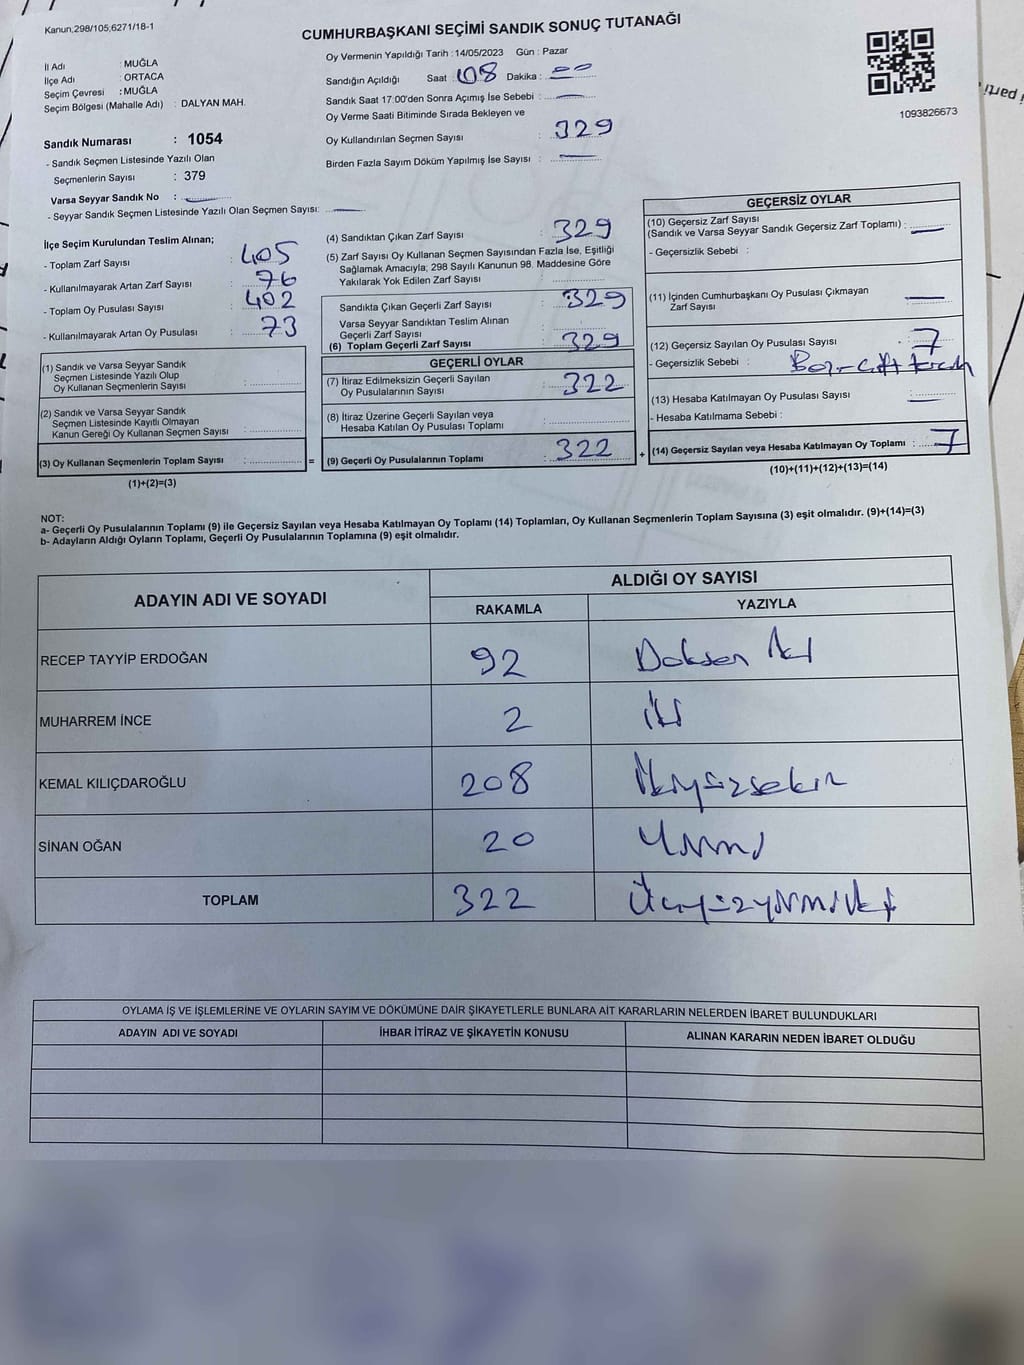 Kanun,298/105,6271/18-1
CUMHURBAŞKANI SEÇİMİ SANDIK SONUÇ TUTANAĞI
İl Adı : MUĞLA
İlçe Adı : ORTACA
Seçim Çevresi : MUĞLA
Seçim Bölgesi (Mahalle Adı) : DALYAN MAH.
Sandık Numarası : 1054
- Sandık Seçmen Listesinde Yazılı Olan
Seçmenlerin Sayısı : 379
Varsa Seyyar Sandık No :
- Seyyar Sandık Seçmen Listesinde Yazılı Olan Seçmen Sayısı:
Oy Vermenin Yapıldığı Tarih : 14/05/2023 Gün : Pazar
Sandığın Açıldığı Saat : 08 Dakika : 00
Sandık Saat 17:00'den Sonra Açımış İse Sebebi :
Oy Verme Saati Bitiminde Sırada Bekleyen ve
Oy Kullandırılan Seçmen Sayısı : 329
Birden Fazla Sayım Döküm Yapılmış İse Sayısı :
1093826673
! parti
İlçe Seçim Kurulundan Teslim Alınan;
- Toplam Zarf Sayısı : 405
- Kullanılmayarak Artan Zarf Sayısı : 76
- Toplam Oy Pusulası Sayısı : 402
- Kullanılmayarak Artan Oy Pusulası : 73
(1) Sandık ve Varsa Seyyar Sandık
Seçmen Listesinde Yazılı Olup
Oy Kullanan Seçmenlerin Sayısı :
(2) Sandık ve Varsa Seyyar Sandık
Seçmen Listesinde Kayıtlı Olmayan
Kanun Gereği Oy Kullanan Seçmen Sayısı :
(3) Oy Kullanan Seçmenlerin Toplam Sayısı :
(1)+(2)=(3)
(4) Sandıktan Çıkan Zarf Sayısı : 329
(5) Zarf Sayısı Oy Kullanan Seçmen Sayısından Fazla İse, Eşitliği
Sağlamak Amacıyla; 298 Sayılı Kanunun 98. Maddesine Göre
Yakılarak Yok Edilen Zarf Sayısı :
Sandıkta Çıkan Geçerli Zarf Sayısı : 329
Varsa Seyyar Sandıktan Teslim Alınan
Geçerli Zarf Sayısı :
(6) Toplam Geçerli Zarf Sayısı : 329
GEÇERLİ OYLAR
(7) İtiraz Edilmeksizin Geçerli Sayılan
Oy Pusulalarının Sayısı : 322
(8) İtiraz Üzerine Geçerli Sayılan veya
Hesaba Katılan Oy Pusulası Toplamı :
= (9) Geçerli Oy Pusulalarının Toplamı : 322 +
GEÇERSİZ OYLAR
(10) Geçersiz Zarf Sayısı
(Sandık ve Varsa Seyyar Sandık Geçersiz Zarf Toplamı) :
- Geçersizlik Sebebi :
(11) İçinden Cumhurbaşkanı Oy Pusulası Çıkmayan
Zarf Sayısı
(12) Geçersiz Sayılan Oy Pusulası Sayısı : 7
- Geçersizlik Sebebi : Boş-çift
(13) Hesaba Katılmayan Oy Pusulası Sayısı :
- Hesaba Katılmama Sebebi :
(14) Geçersiz Sayılan veya Hesaba Katılmayan Oy Toplamı : 7
(10)+(11)+(12)+(13)=(14)
NOT:
a- Geçerli Oy Pusulalarının Toplamı (9) ile Geçersiz Sayılan veya Hesaba Katılmayan Oy Toplamı (14) Toplamları, Oy Kullanan Seçmenlerin Toplam Sayısına (3) eşit olmalıdır. (9)+(14)=(3)
b- Adayların Aldığı Oyların Toplamı, Geçerli Oy Pusulalarının Toplamına (9) eşit olmalıdır.
ADAYIN ADI VE SOYADI ALDIĞI OY SAYISI
RAKAMLA YAZIYLA
RECEP TAYYİP ERDOĞAN 92 Doksan İki
MUHARREM İNCE 2 İki
KEMAL KILIÇDAROĞLU 208 İkiyüzsekiz
SİNAN OĞAN 20 Yirmi
TOPLAM 322 Üçyüzyirmiiki
OYLAMA İŞ VE İŞLEMLERİNE VE OYLARIN SAYIM VE DÖKÜMÜNE DAİR ŞİKAYETLERLE BUNLARA AİT KARARLARIN NELERDEN İBARET BULUNDUKLARI
ADAYIN ADI VE SOYADI İHBAR İTİRAZ VE ŞİKAYETİN KONUSU ALINAN KARARIN NEDEN İBARET OLDUĞU